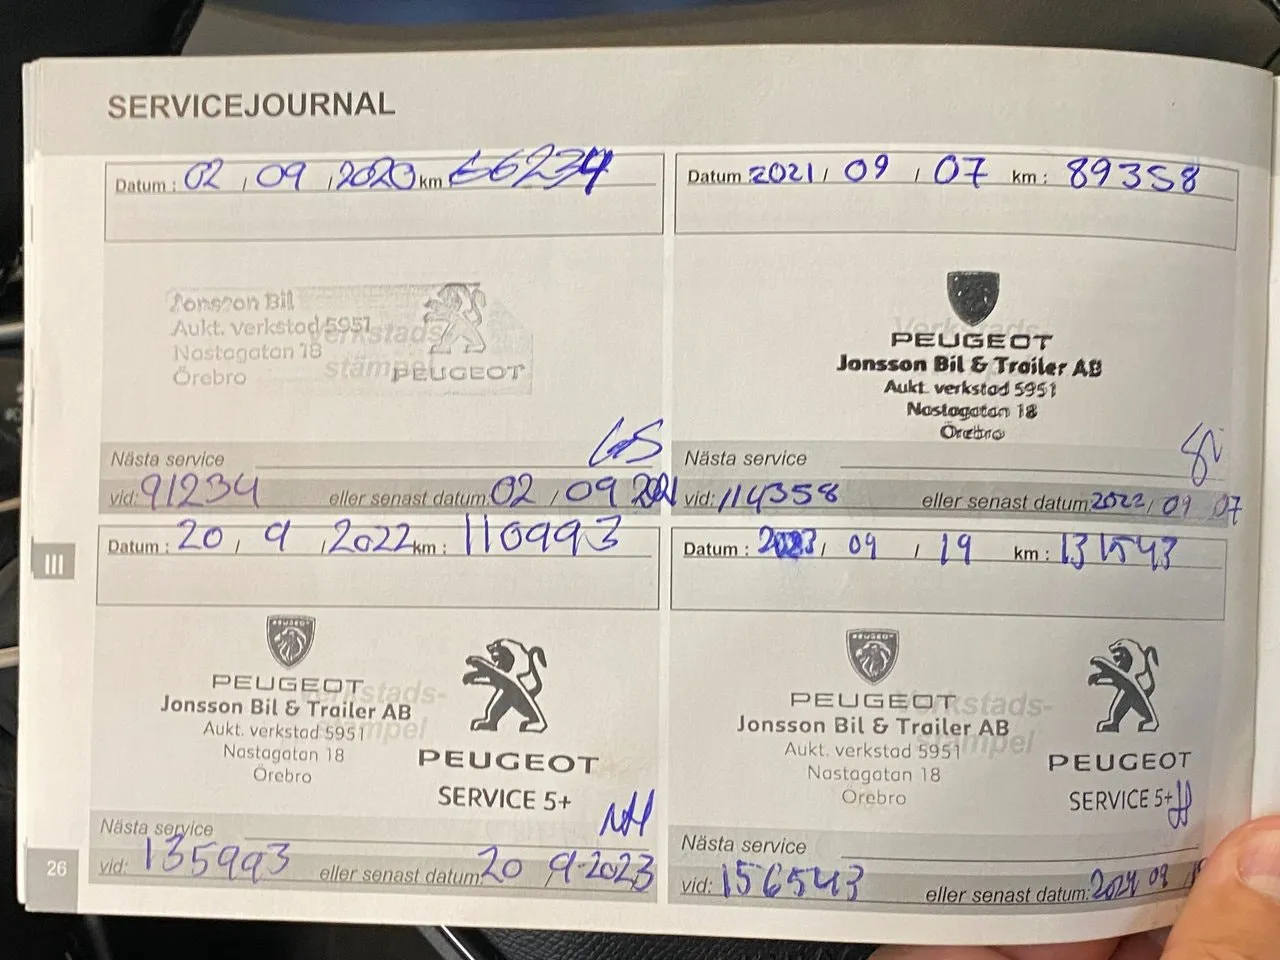 SERVICEJOURNAL
Datum : 02 / 09 / 2020 km 66234
Verkstads-
stämpel
Jonsson Bil
Aukt. verkstad 5951
Nastagatan 18
Örebro
PEUGEOT
GS
Nästa service
vid: 91234 eller senast datum: 02 / 09 2021
Datum : 2021 / 09 / 07 km : 89358
Verkstads-
PEUGEOT
Jonsson Bil & Trailer AB
Aukt. verkstad 5951
Nastagatan 18
Örebro
Nästa service
vid: 114358 eller senast datum: 2022 / 09 07
Datum : 20 / 9 / 2022 km : 110993
PEUGEOT
PEUGEOT
Verkstads-
stämpel
Jonsson Bil & Trailer AB
Aukt. verkstad 5951
Nastagatan 18
Örebro
PEUGEOT
SERVICE 5+
NH
Nästa service
vid: 135993 eller senast datum: 20 / 9-2023
Datum : 2023 / 09 / 19 km : 131543
PEUGEOT
PEUGEOT
Verkstads-
stämpel
Jonsson Bil & Trailer AB
Aukt. verkstad 5951
Nastagatan 18
Örebro
PEUGEOT
SERVICE 5+
Nästa service
vid: 156543 eller senast datum: 2024 09
III
26